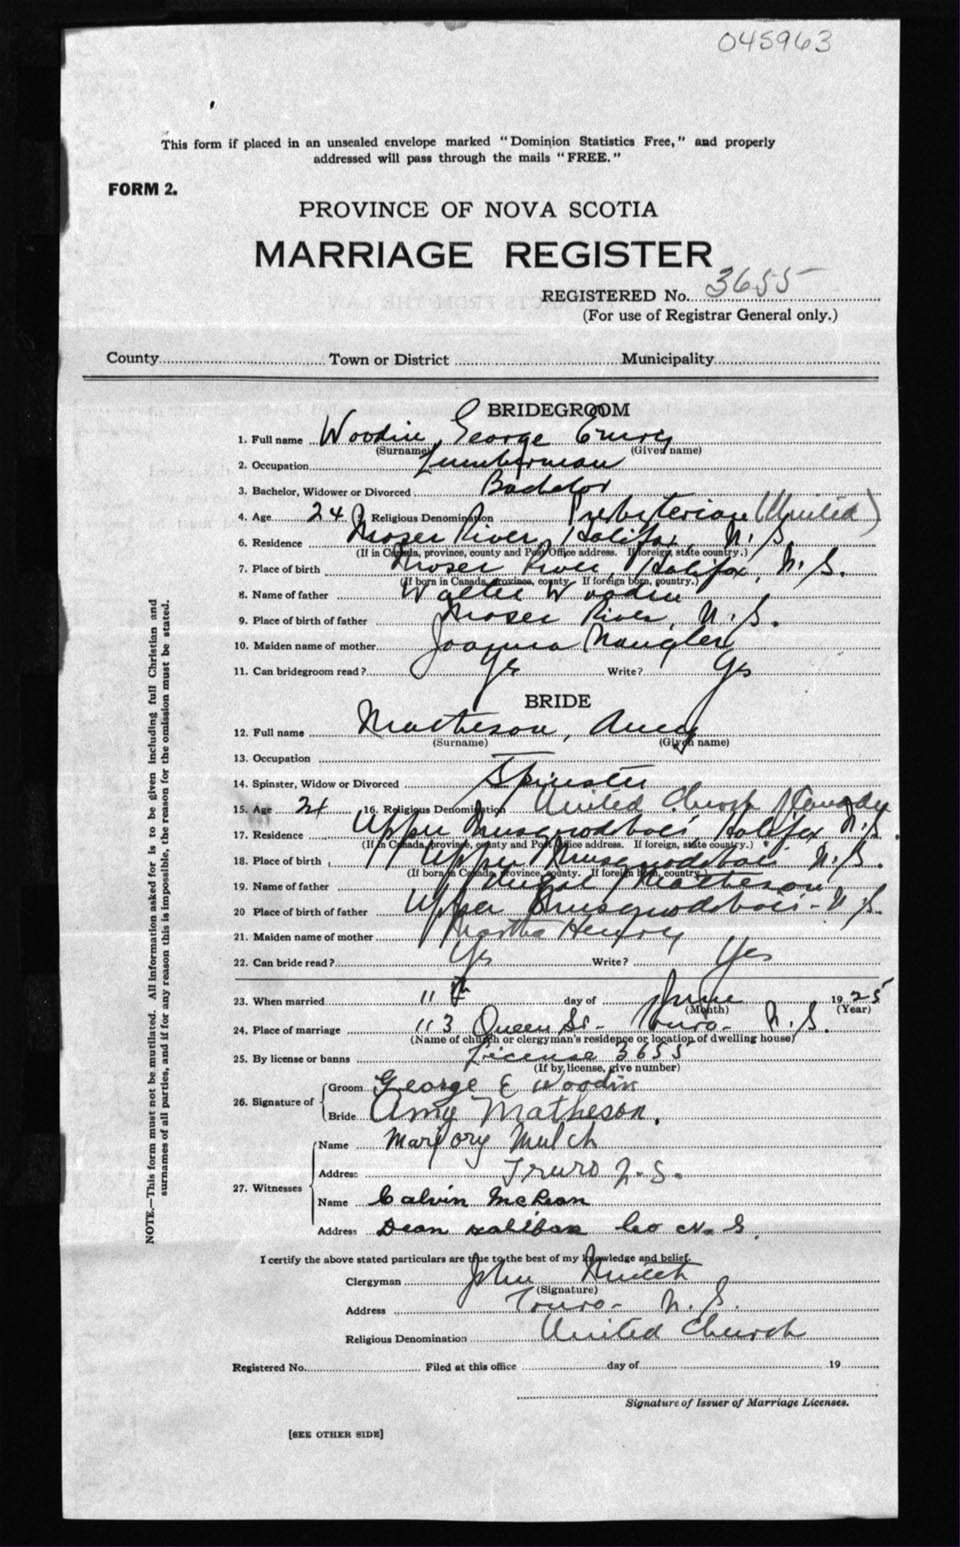 045963
This form if placed in an unsealed envelope marked "Dominion Statistics Free," and properly
addressed will pass through the mails "FREE."
FORM 2.
PROVINCE OF NOVA SCOTIA
MARRIAGE REGISTER
REGISTERED No. 3655
(For use of Registrar General only.)
County Town or District Municipality
BRIDEGROOM
1. Full name Woodin, George Emory
(Surname) (Given name)
2. Occupation Lumberman
3. Bachelor, Widower or Divorced Bachelor
4. Age 24 Religious Denomination Presbyterian (United)
6. Residence Moser River, Halifax, N. S.
(If in Canada, province, county and Post Office address. If foreign, state country.)
7. Place of birth Moser River, Halifax, N. S.
(If born in Canada, province, county. If foreign born, country.)
8. Name of father Walter Woodin
9. Place of birth of father Moser River, N. S.
10. Maiden name of mother Joanna Naugler
11. Can bridegroom read? Yes Write? Yes
BRIDE
12. Full name Matheson, Amy
(Surname) (Given name)
13. Occupation —
14. Spinster, Widow or Divorced Spinster
15. Age 24 16. Religious Denomination United Church Canada
17. Residence Upper Musquodoboit, Halifax N. S.
(If in Canada, province, county and Post Office address. If foreign, state country.)
18. Place of birth Upper Musquodoboit N. S.
(If born in Canada, province, county. If foreign born, country.)
19. Name of father Matheson
20 Place of birth of father Upper Musquodoboit - N. S.
21. Maiden name of mother Martha Henry
22. Can bride read? Yes Write? Yes
23. When married 11th day of June 1925
(Month) (Year)
24. Place of marriage 113 Queen St - Truro - N. S.
(Name of church or clergyman's residence or location of dwelling house)
25. By license or banns License 3655
(If by license, give number)
26. Signature of Groom George E Woodin
Bride Amy Matheson.
27. Witnesses Name Marjory Mulch
Address Truro N. S.
Name Calvin McLean
Address Dean Halifax Co N. S.
I certify the above stated particulars are true to the best of my knowledge and belief.
Clergyman John
(Signature)
Address Truro - N. S.
Religious Denomination United Church
Registered No. Filed at this office day of 19
Signature of Issuer of Marriage Licenses.
[SEE OTHER SIDE]
NOTE.—This form must not be mutilated. All information asked for is to be given including full Christian and
surnames of all parties, and if for any reason this is impossible, the reason for the omission must be stated.